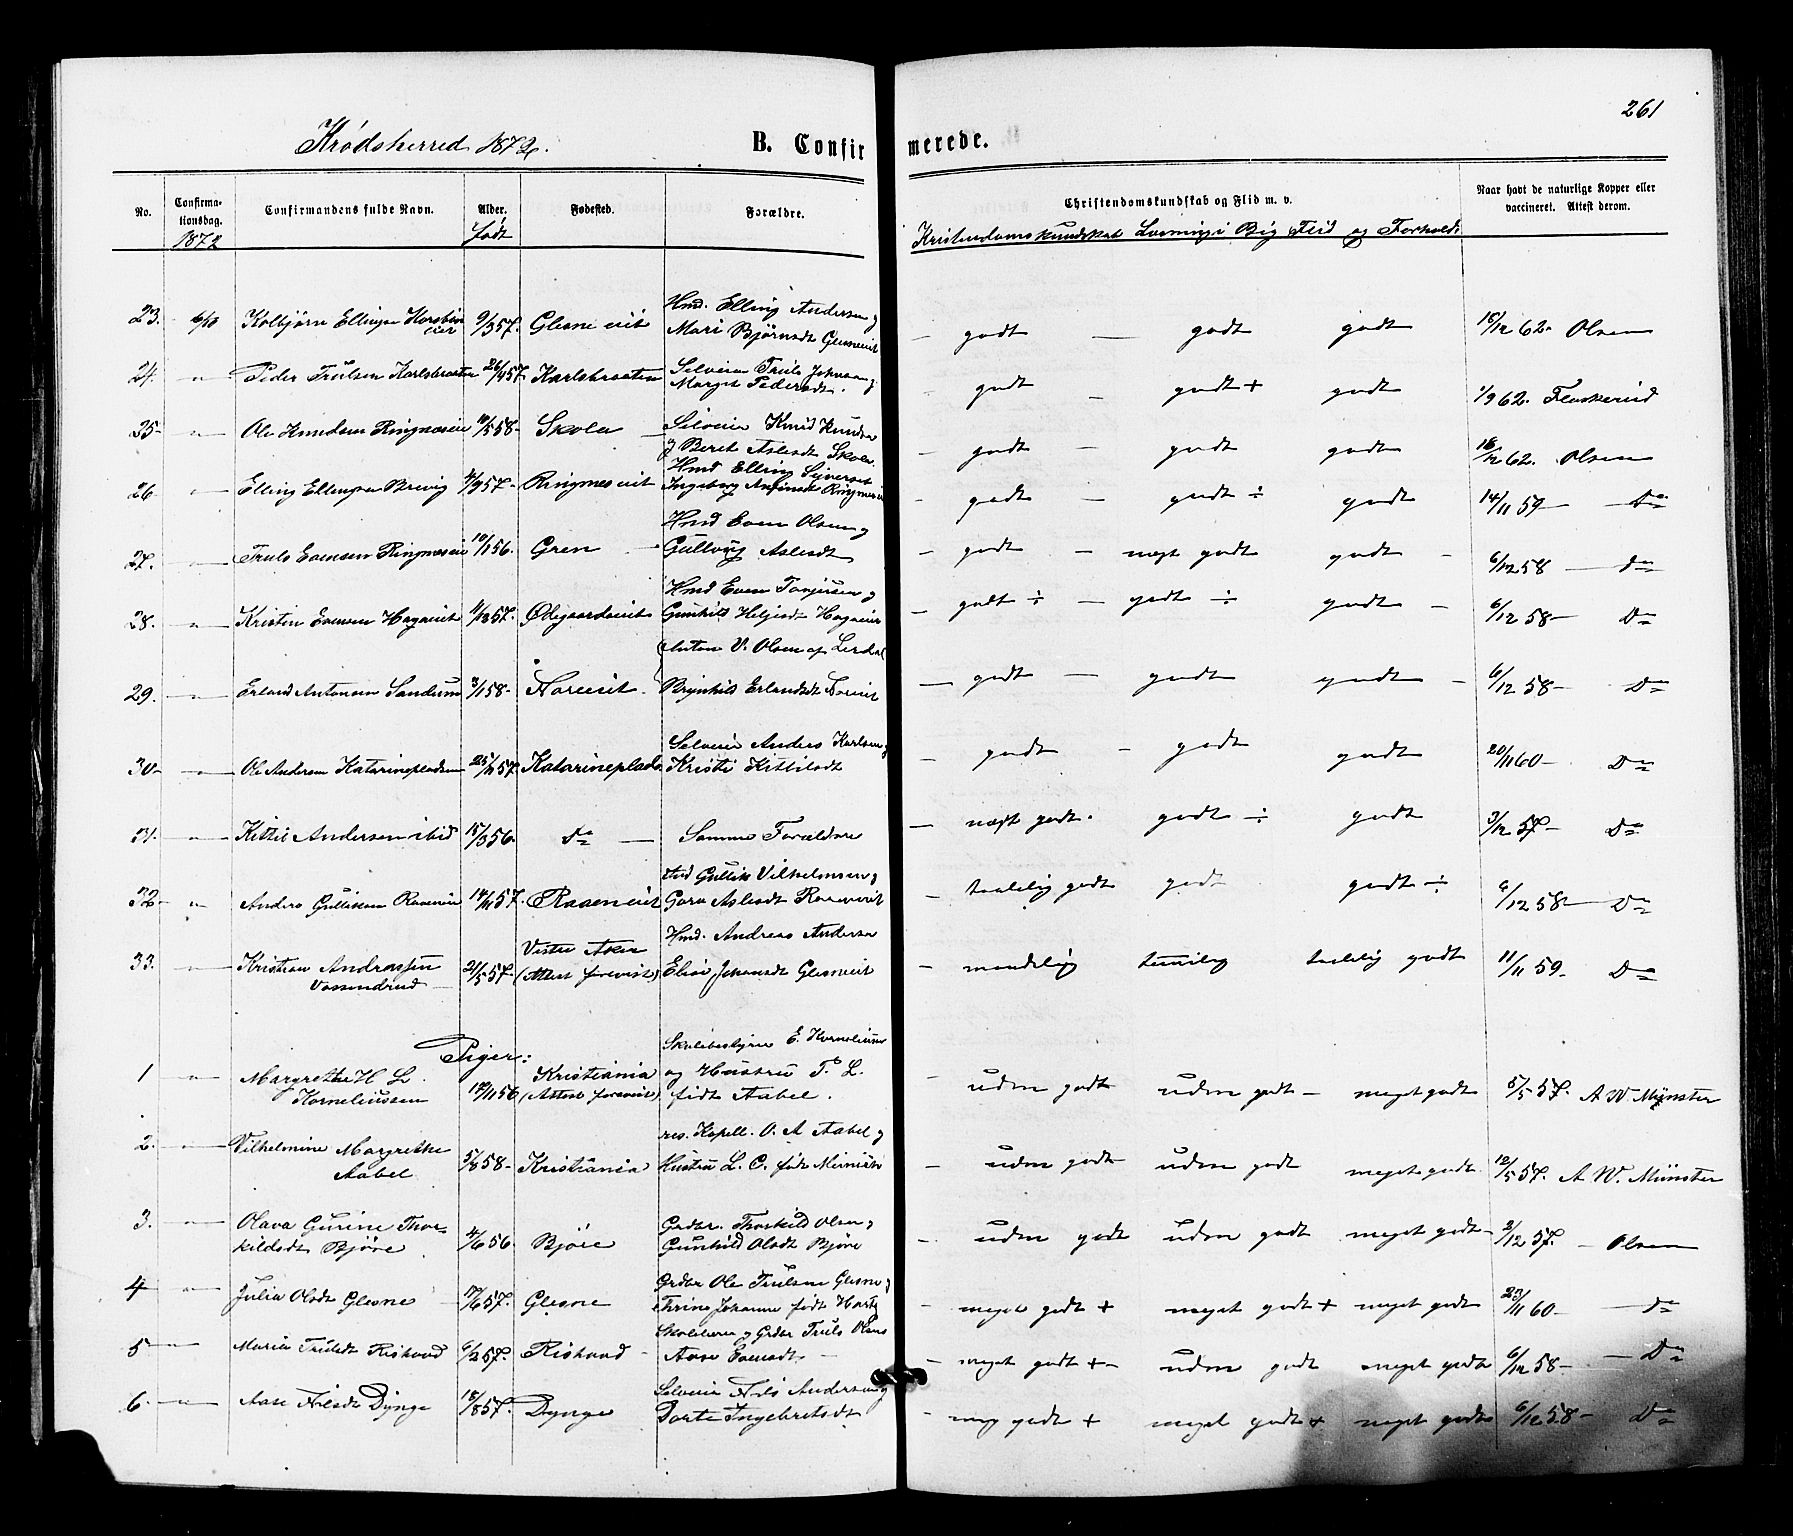 261
Krødsherred 1872.
B. Confirmerede.
No.
Confirmationsdag.
1872
Confirmandens fulde Navn.
Alder.
født
Fødested.
Forældre.
Christendomskundskab og Flid m. v.
Naar havt de naturlige Kopper eller
vaccineret. Attest derom.
Kristendomskundskab Læsning i Bog Flid og Forhold
Hmd. Elling Andersen og
23. 6/10 Kolbjørn Ellingsen 9/3 57. Glesne eiet Mari Bjørnsdt Glesneeiet - godt - godt godt 18/12 62. Olsen
24. " Peder Trulsen Karlsbraaten 26/4 57. Karlsbraaten Selveier Truls Johnsen og
Margit Pedersdt. godt - godt + godt 1/9 62. Flaskerud
25. " Ole Knudsen Ringnæseie 10/5 58. Skola Selveier Knud Knudsen
og Beret Aslesdt Skola. - godt - godt godt 18/12 62. Olsen
Hmd Elling Sjversen
26. " Elling Ellingsen Brevig 4/9 57. Ringnes eiet Ingeborg - godt - godt ÷ godt 14/11 59 Do
Hmd Even Olsen og
27. " Truls Evensen Ringnæseie 10/1 56. Gren Gullaug Aslesdt - godt - nogt godt godt - 6/12 58 do
Hmd Even Torjusen og
28. " Kristen Evensen Hagaeiet 11/12 57. Ødegaardseiet Gunhild Helgesdt Hagaeiet - godt ÷ - godt ÷ godt - 6/12 58 - Do
Anton V. Olsen af Lerdal
29. " Erland Antonsen Sandum 3/1 58 - Noreeiet. Brynhild Erlandsdt Noreeiet - godt - godt godt - 6/12 58 - Do
Selveier Anders Karlsen og
30 " Ole Andersen Katarinepladsen 25/11 57 Katarineplads Kristi Kittilsdt godt - godt godt 20/11 60 - Do
31. " Kittil Andersen ibid 15/3 56. Do Samme Forældre - nogt godt. godt ÷ godt 3/12 57 - Do
Ind Gullik Vilhelmsen og
32 " Anders Gulliksen Raaeneie 14/11 57. Raaen eiet Goro Aslesdt Raaeneiet - taalelig godt godt godt ÷ 6/12 58 Do
Hmd. Andreas Andersen
33. " Kristian Andreassen
Vassendrud 21/5 57. Vestre Aker
(Attest forevist) Elise Johansdt Glesneeiet - maadelig temmelig taalelig godt 11/11 59. Do
Piger:
Skolebestyrer E. Kornelius
1 " Margrethe H L.
Korneliussen 17/11 56 Kristiania
(Attest forevist) og Hustru T. L.
født Aabel. - uden godt uden godt - meget godt 5/5 57. A W. Münster
res. Kapell. O. A Aabel og
2. " Vilhelmine Margrethe
Aabel 5/8 58 - Kristiania Hustru L. C. født Münster - uden godt uden godt meget godt 12/5 57. A W. Münster
3. " Olava Gurine Thorkildsdt Bjøre 4/6 56. Bjøre Grdbr. Thorkild Olsen og
Gunhild Olsdt Bjøre - uden godt uden godt meget godt - 2/12 57. - Olsen
4 " Julia Olsdt Glesne 17/6 57. Glesne Grdbr Ole Trulsen Glesne og
Thrine Johanne født Hartz - meget godt + meget godt + meget godt 23/11 60 do
5 " Maria Trulsdt Riskaad 6/2 57. Riskaad - Skolelærer og Grdbr Truls Olsens
Aase Evensdt - - meget godt + - uden godt meget godt 6/12 58 - Do
6. " Aase Nilsdt Dynge 18/8 57. Dynge Selveier Nils Andersen og
Dorte Ingebretsdt - meg godt + meget godt + meget godt 6/12 58 - Do